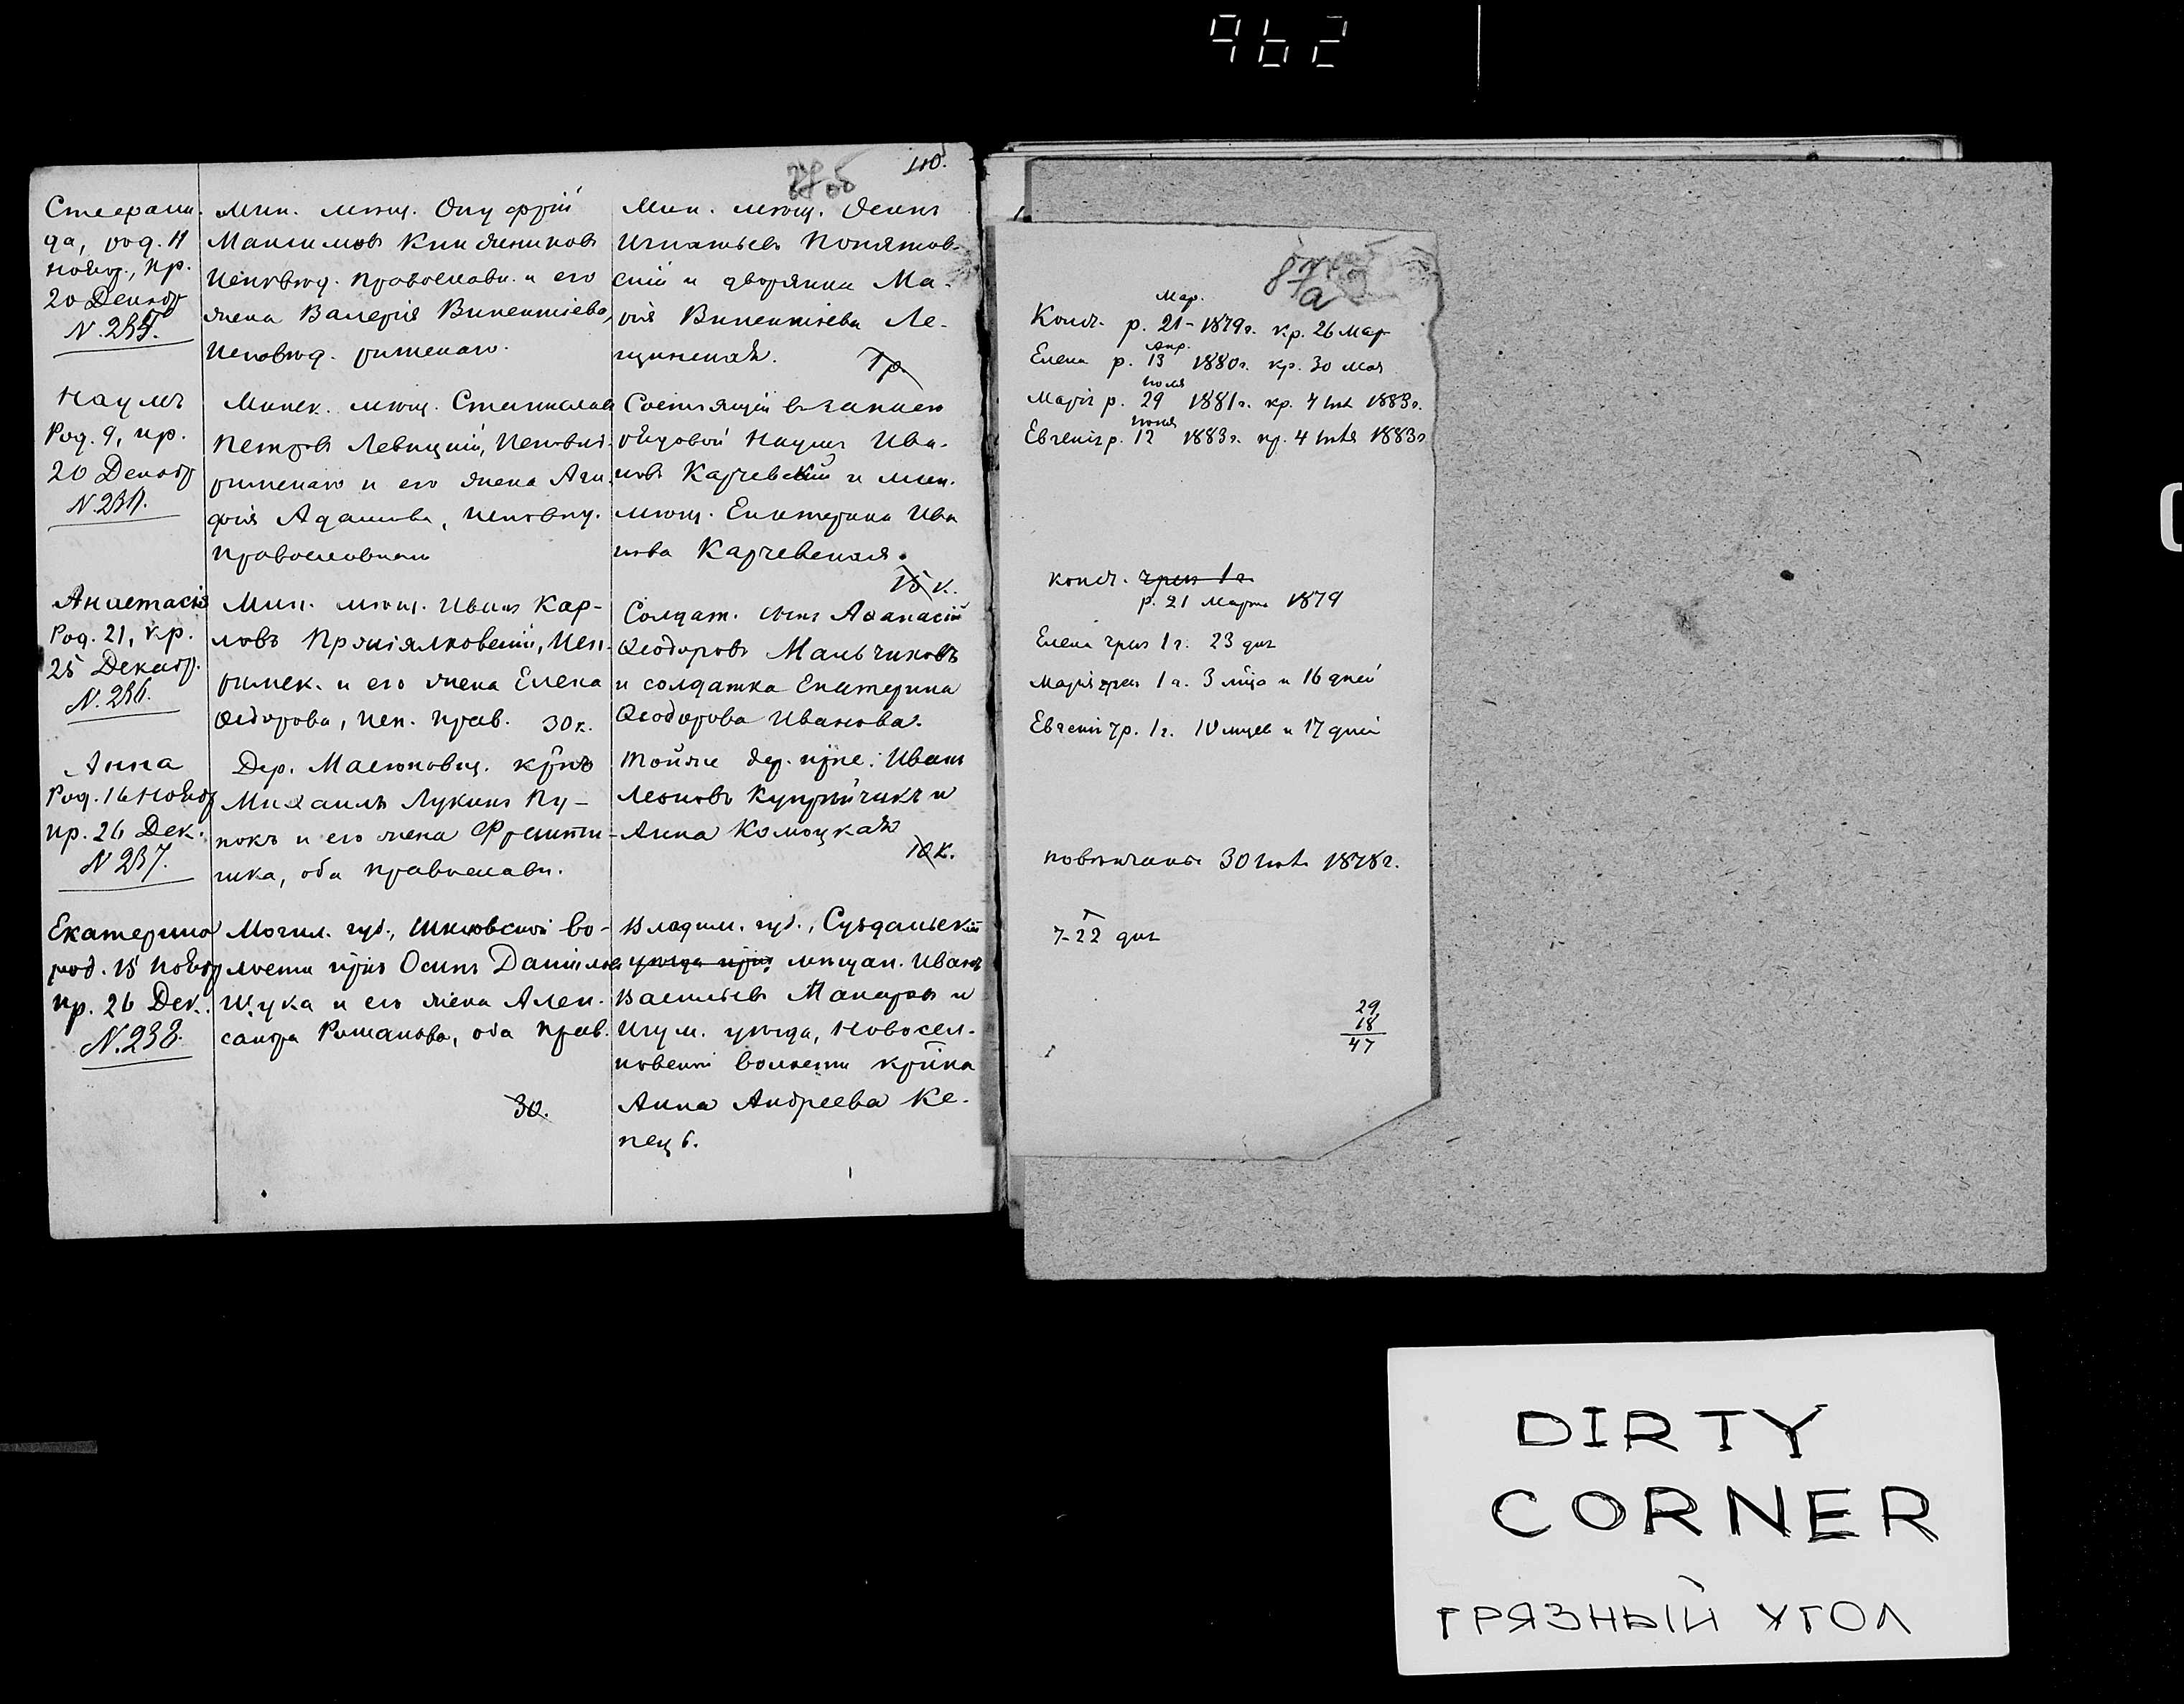 962
110.
Стефани-
да, род. 11
Нояб., кр.
20 Декабр
N. 234.
Мин. мѣщ. Онуфрій
Максимовъ
исповѣд. православн. и его
жена Валерія Викентіева,
исповѣд. римскаго.
Мин. мѣщ. Осипъ
Игнатьевъ Понятов-
скій и дворянка Ма-
рія Викентіева Ле-
щинская.
1 р.
Наумъ
Род. 9, кр.
20 Декабр
N. 235.
Минск. мѣщ. Станиславъ
Петровъ Левицкій, исповѣд.
римскаго и его жена Ага-
фія Адамова, исповѣд.
православнаго
Состоящій въ запасѣ
рядовой Наумъ Ива-
новъ Карчевскій и мин.
мѣщ. Екатерина Ива
нова Карчевская.
15 к.
Анастасія
Род. 21, кр.
25 Декабр.
N. 236.
Мин. мѣщ. Иванъ Кар-
ловъ исп.
римск. и его жена Елена
Ѳедорова, исп. прав. 30 к.
Солдат. сынъ Аѳанасій
Ѳеодоровъ Мальчиковъ
и солдатка Екатерина
Ѳеодорова Иванова.
Анна
Род. 16 Нояб
кр. 26 Дек.
N 237.
Дер. Масюковщ. кр̃нъ
Михаилъ Лукинъ Пу-
покъ и его жена
оба православн.
Тойже дер. кр̃не: Иванъ
Леоновъ Купрейчикъ и
Анна Комоцкая
10 к.
Екатерина
род. 15 Нояб
кр. 26 Дек.
N. 238.
Могил. губ., Шкловской во-
лости кр̃нъ Осипъ Даниловъ
Щука и его жена Алек-
сандра Романова, оба прав.
30.
Владим. губ., Суздальскій
уѣзда кр̃нъ мѣщан. Иванъ
Васильевъ Макаровъ и
Игум. уѣзда, Новосел-
ковской волости кр̃нка
Анна Андреева Ке-
пецъ.
87
а
Мар.
Конст. р. 21 - 1879 г. кр. 26 Мар
Апр.
Елена р. 13 1880 г. кр. 30 Мая
Іюля
Марія р. 29 1881 г. кр. 4 1883 г.
Іюня
Евгенія р. 12 1883 г. кр. 4 1883 г
Конст. чрезъ 1 г.
р. 21 Марта 1879
Елена чрезъ 1 г. 23 дня
Марія чрезъ 1 г. 3 мѣца и 16 дней
Евгенія чр. 1 г. 10 мцев и 17 дней
повѣнчаны 30 1878 г.
7-22 дня
29
18
47
DIRTY
CORNER
ГРЯЗНЫЙ УГОЛ